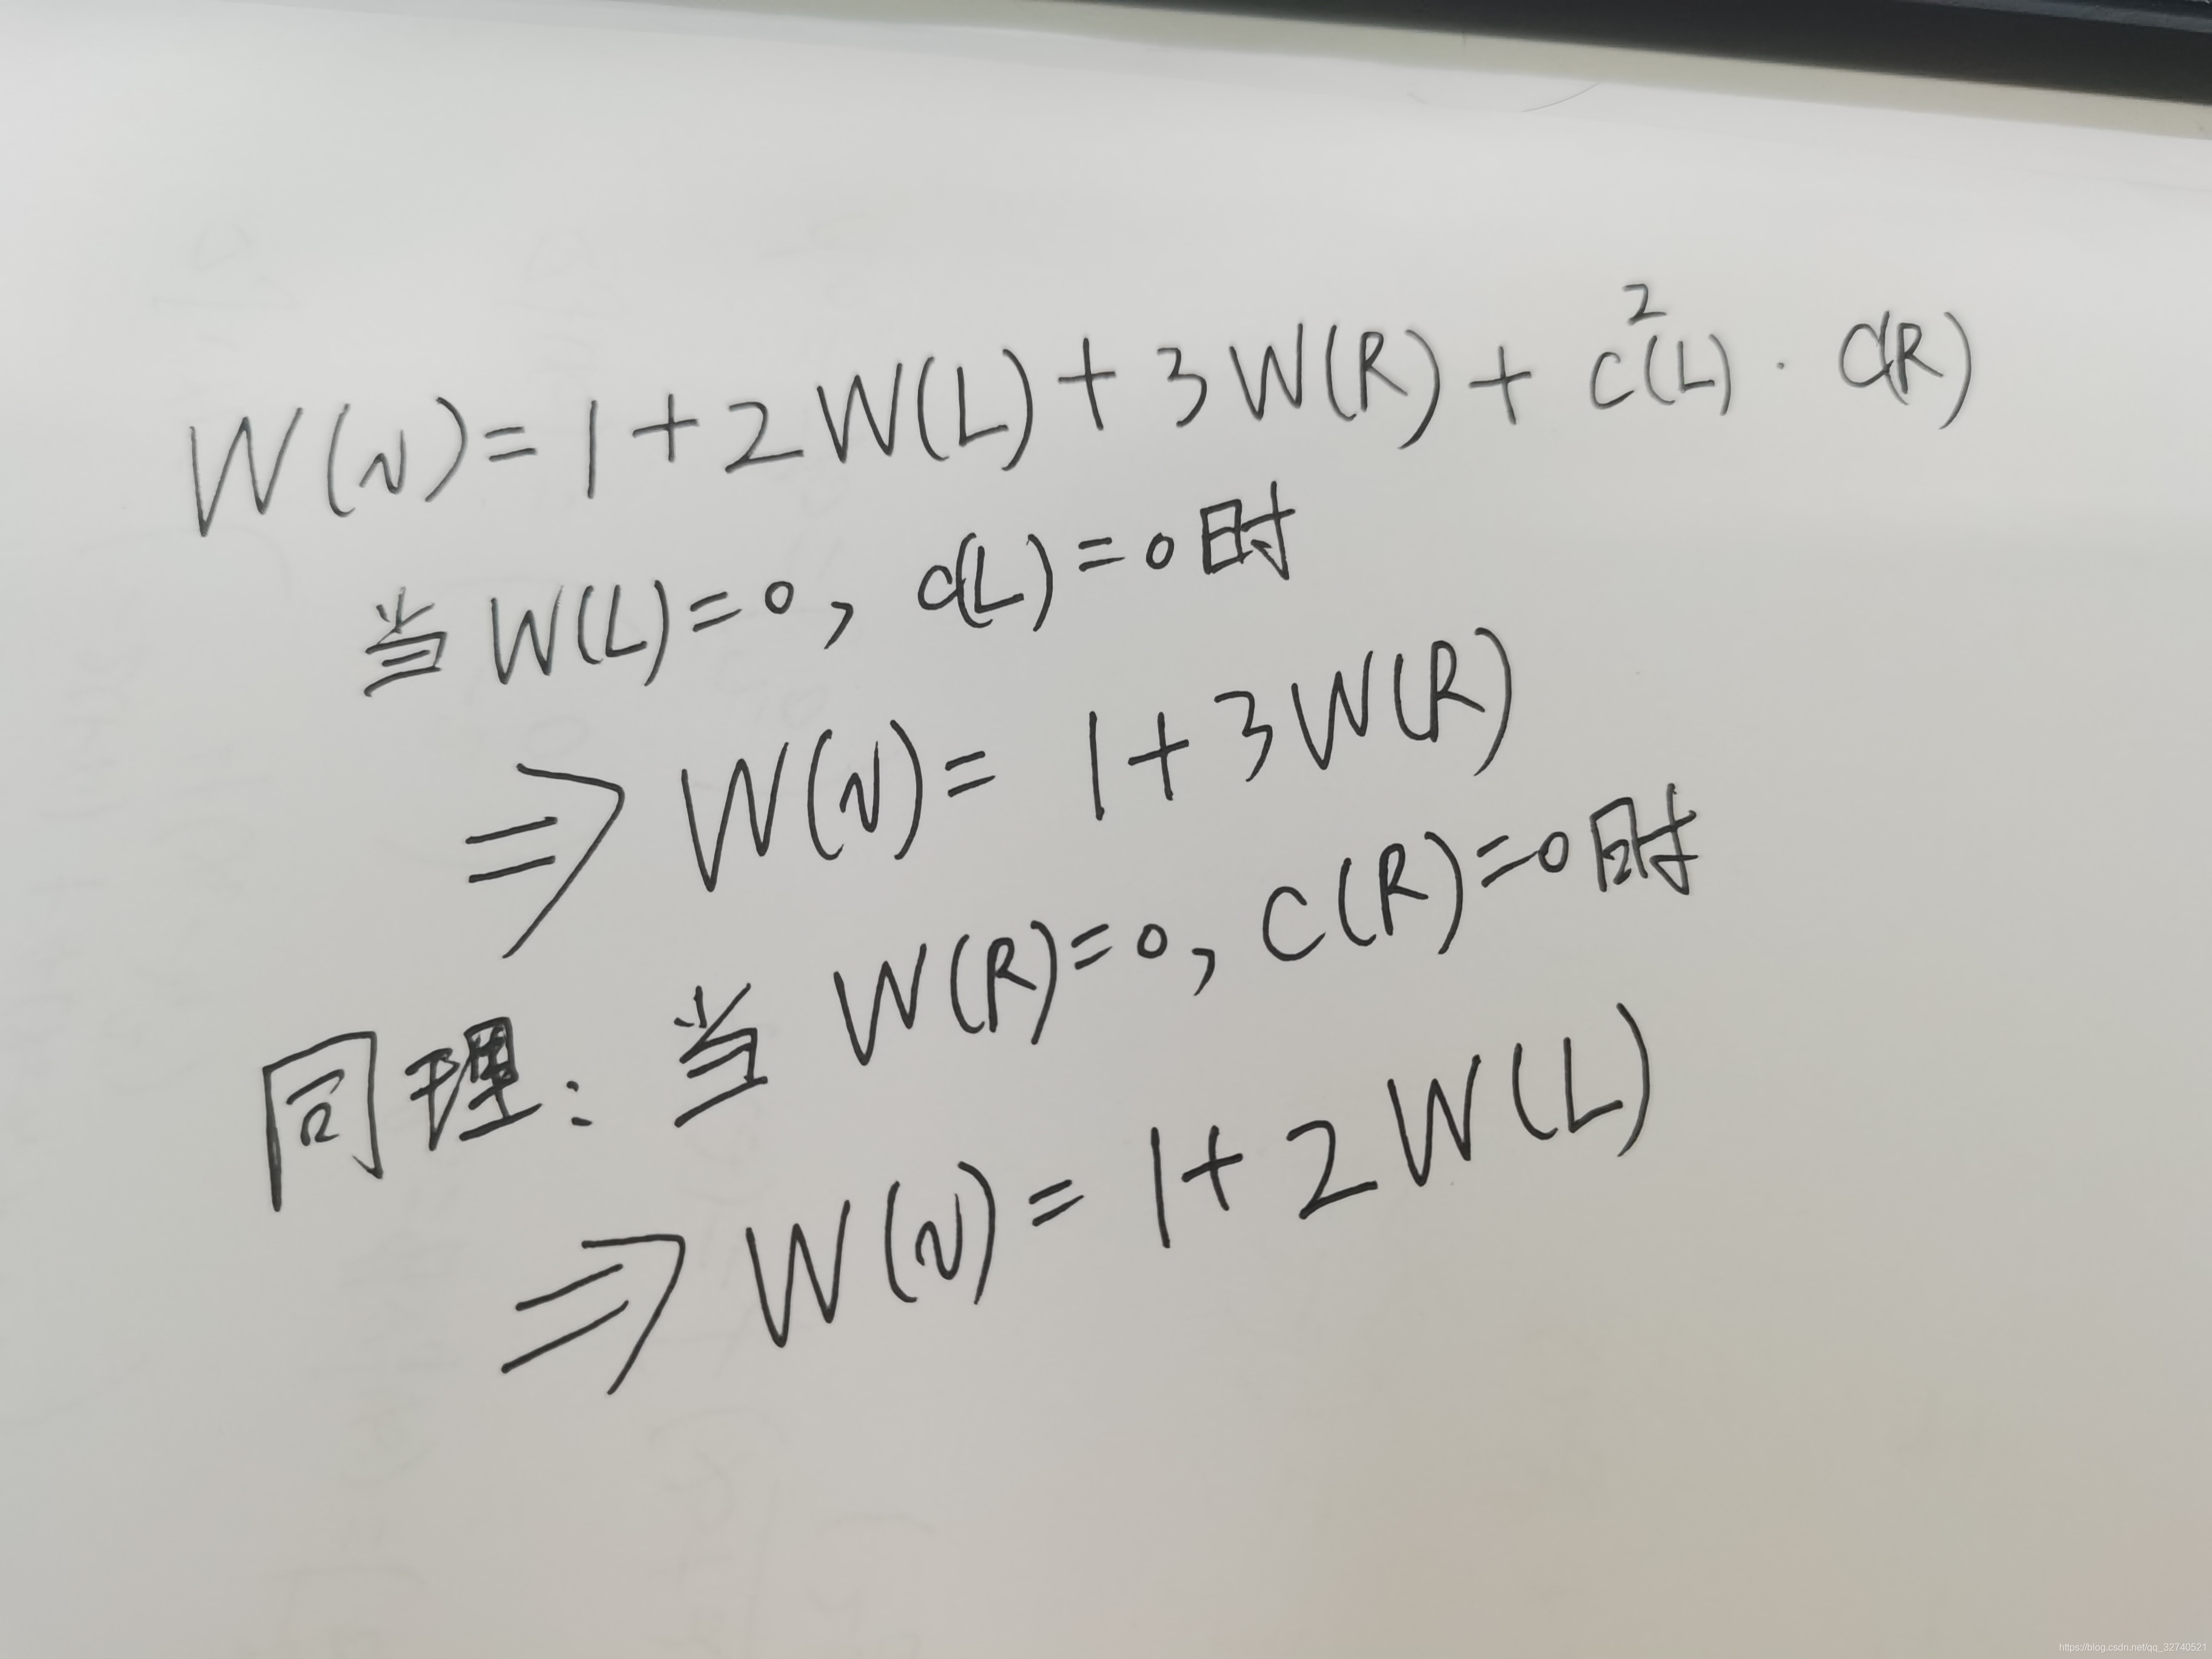 W(N)=1+2W(L)+3W(R)+C²(L)·C(R)
当W(L)=0, C(L)=0时
⇒W(N)=1+3W(R)
同理:当W(R)=0, C(R)=0时
⇒W(N)=1+2W(L)
https://blog.csdn.net/qq_32740521